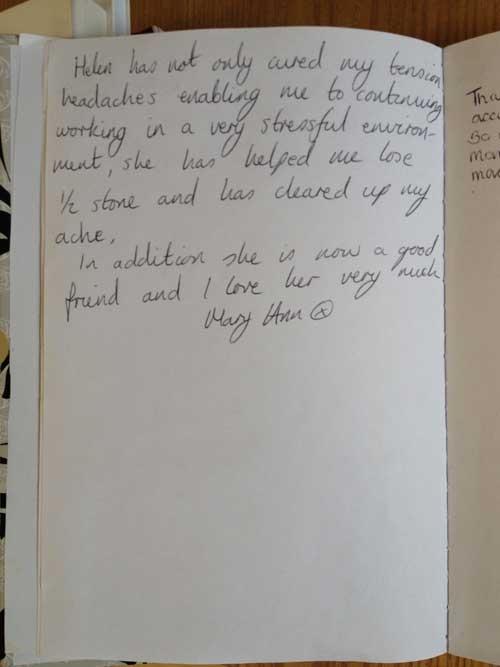 Helen has not only cured my tension
headaches enabling me to continuing
working in a very stressful environ-
ment, she has helped me lose
1/2 stone and has cleared up my
ache.
In addition she is now a good
friend and I love her very much
Mary Ann ⓧ